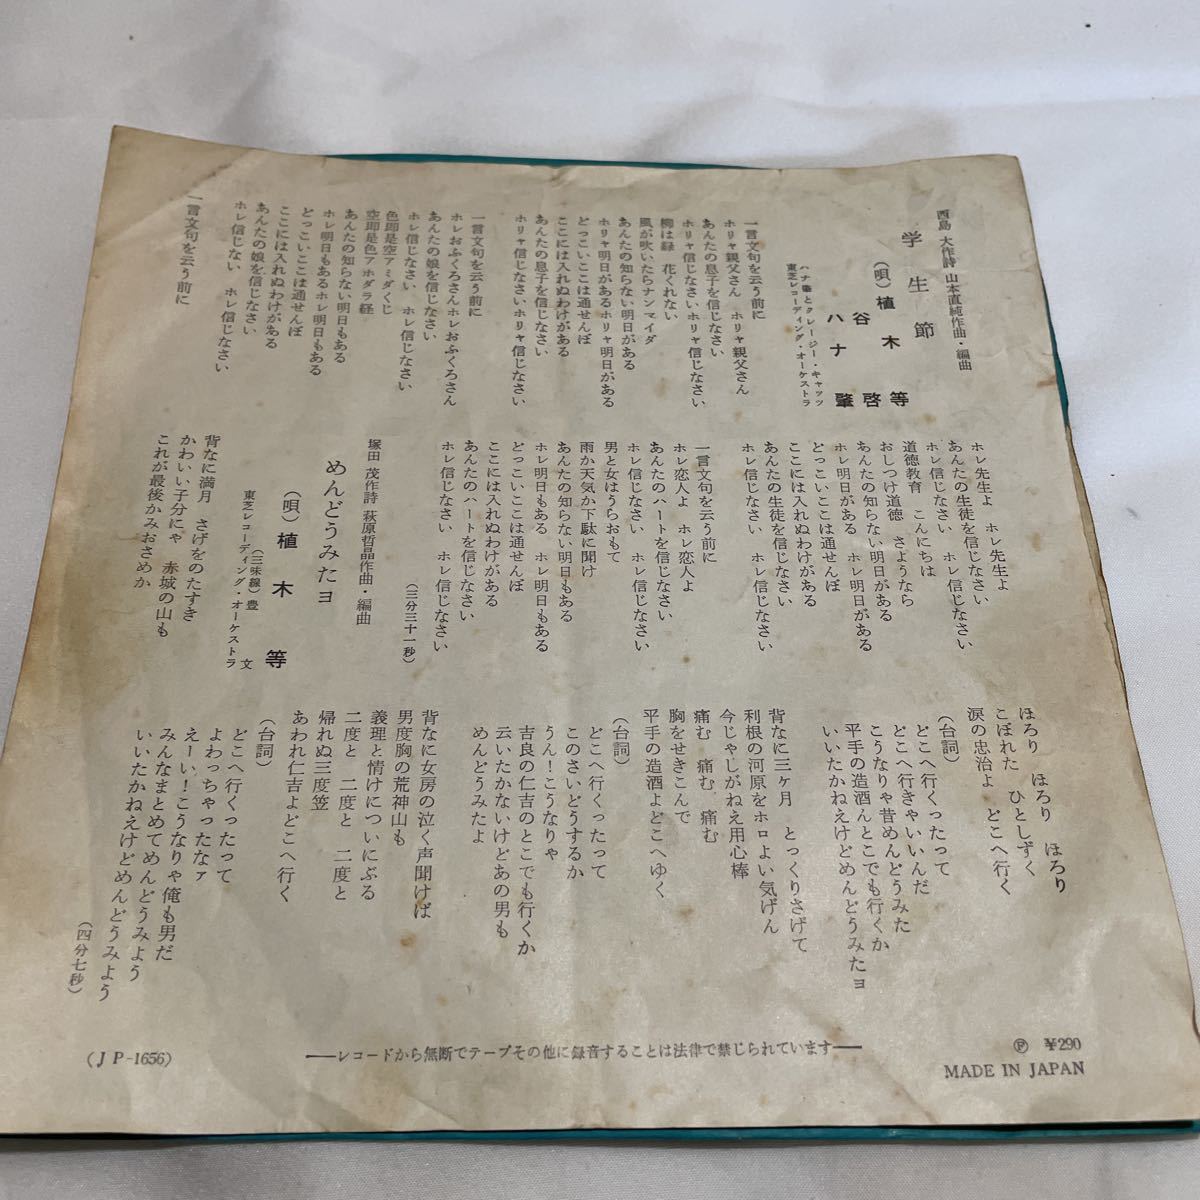 西島 大作詩 山本直純作曲・編曲
学生節
(唄) 植木 等
谷 啓
ハナ 肇
ハナ肇とクレージー・キャッツ
東芝レコーディング・オーケストラ
一言文句を云う前に
ホリャ親父さん ホリャ親父さん
あんたの息子を信じなさい
ホリャ信じなさいホリャ信じなさい
柳は緑 花くれない
風が吹いたらナンマイダ
あんたの知らない明日がある
ホリャ明日があるホリャ明日がある
どっこいここは通せんぼ
ここには入れぬわけがある
あんたの息子を信じなさい
ホリャ信じなさいホリャ信じなさい
一言文句を云う前に
ホレおふくろさんホレおふくろさん
あんたの娘を信じなさい
ホレ信じなさい ホレ信じなさい
色即是空アミダくじ
空即是色アホダラ経
あんたの知らない明日もある
ホレ明日もあるホレ明日もある
どっこいここは通せんぼ
ここには入れぬわけがある
あんたの娘を信じなさい
ホレ信じない ホレ信じなさい
一言文句を云う前に
ホレ先生よ ホレ先生よ
あんたの生徒を信じなさい
ホレ信じなさい ホレ信じなさい
道徳教育 こんにちは
おしつけ道徳 さようなら
あんたの知らない明日がある
ホレ明日がある ホレ明日がある
どっこいここは通せんぼ
ここには入れぬわけがある
あんたの生徒を信じなさい
ホレ信じなさい ホレ信じなさい
一言文句を云う前に
ホレ恋人よ ホレ恋人よ
あんたのハートを信じなさい
ホレ信じなさい ホレ信じなさい
男と女はうらおもて
雨か天気か下駄に聞け
あんたの知らない明日もある
ホレ明日もある ホレ明日もある
どっこいここは通せんぼ
ここには入れぬわけがある
あんたのハートを信じなさい
ホレ信じなさい ホレ信じなさい
(三分三十一秒)
塚田 茂作詩 萩原哲晶作曲・編曲
めんどうみたョ
(唄) 植木 等
(三味線) 豊 文
東芝レコーディング・オーケストラ
背なに満月 さげをのたすき
かわいい子分にゃ 赤城の山も
これが最後かみおさめか
ほろり ほろり ほろり
こぼれた ひとしずく
涙の忠治よ どこへ行く
(台詞)
どこへ行くったって
どこへ行きゃいいんだ
こうなりゃ昔めんどうみた
平手の造酒んとこでも行くか
いいたかねえけどめんどうみたョ
背なに三ヶ月 とっくりさげて
利根の河原をホロよい気げん
今じゃしがねえ用心棒
痛む 痛む 痛む
胸をせきこんで
平手の造酒よどこへゆく
(台詞)
どこへ行くったって
このさいどうするか
うん!こうなりゃ
吉良の仁吉のとこでも行くか
云いたかないけどあの男も
めんどうみたよ
背なに女房の泣く声聞けば
男度胸の荒神山も
義理と情けについにぶる
二度と 二度と 二度と
帰れぬ三度笠
あわれ仁吉よどこへ行く
(台詞)
どこへ行くったって
よわっちゃったなァ
えーい!こうなりゃ俺も男だ
みんなまとめてめんどうみよう
いいたかねえけどめんどうみよう
(四分七秒)
(JP-1656)
―レコードから無断でテープその他に録音することは法律で禁じられています―
Ⓟ ¥290
MADE IN JAPAN